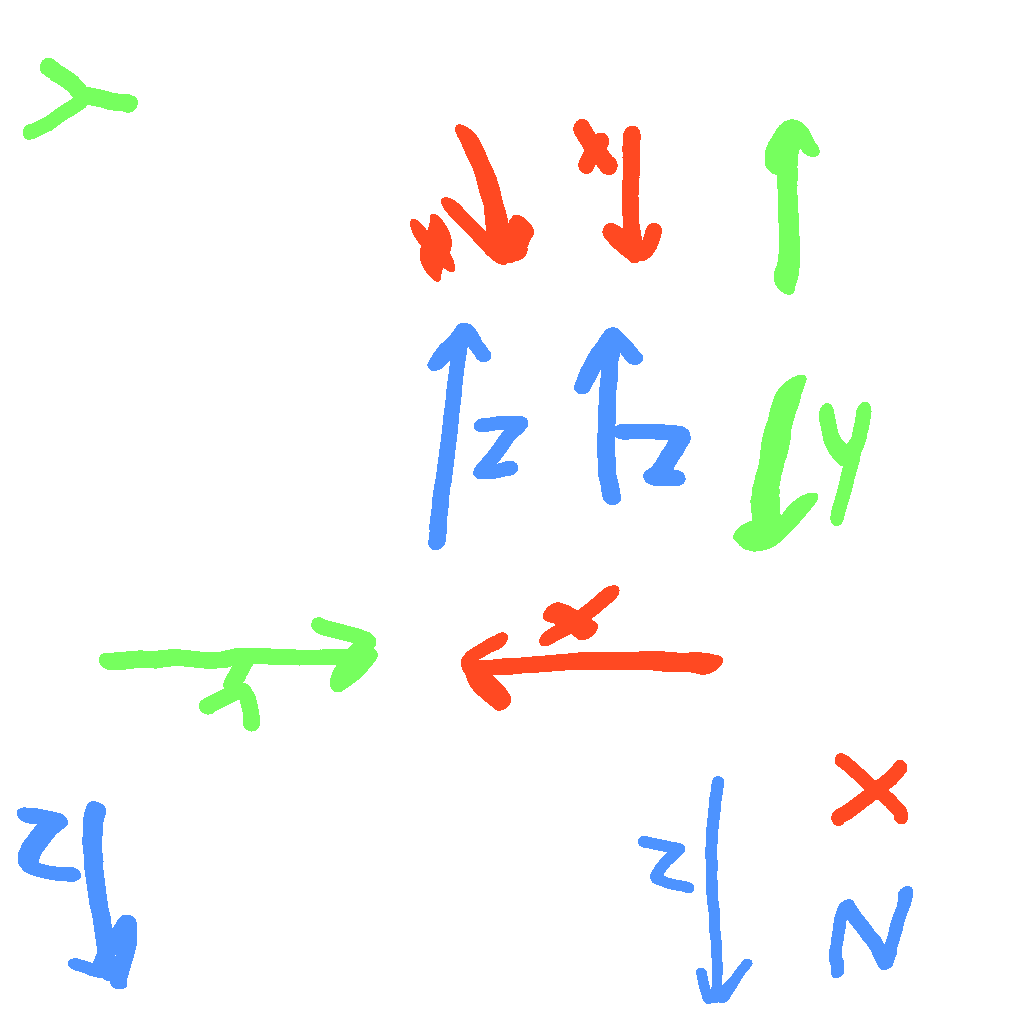 Y
X
X
Z
Z
Y
X
Y
Z
Z
X
Z